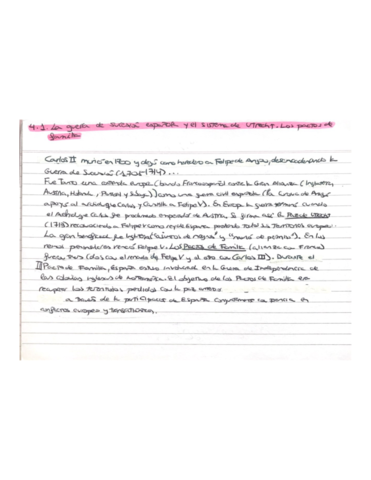 4.1. La guerra de sucesión española y el sistema de Utrecht. Los pactos de
familia
Carlos II murió en 1700 y dejó como heredero a Felipe de Anjou, desencadenando la
Guerra de Sucesión (1701-1714)...
Fue tanto una contienda europea (bando Francoespañol contra la Gran Alianza (Inglaterra,
Austria, Holanda, Portugal y ) como una guerra civil española (la Corona de Aragón
apoyó al Archiduque Carlos y Castilla a Felipe V). En Europa la guerra terminó cuando
el Archiduque Carlos fue proclamado emperador de Austria. Se firma así la Paz de Utrecht
(1713) reconociendo a Felipe V como rey de España perdiendo todos sus territorios europeos.
La gran beneficiada fue Inglaterra ("asiento de negros" y "navío de permiso"). En los
Felipe V. Los Pactos de Familia (alianza con Francia)
fueron tres (dos con el reinado de Felipe V y el otro con Carlos III). Durante el
III Pacto de Familia, España estuvo involucrada en la Guerra de Independencia de
las colonias inglesas de Norteamérica. El objetivo de los Pactos de Familia era
recuperar los territorios perdidos con la paz
a través de la participación de España conjuntamente con Francia en
conflictos europeos y